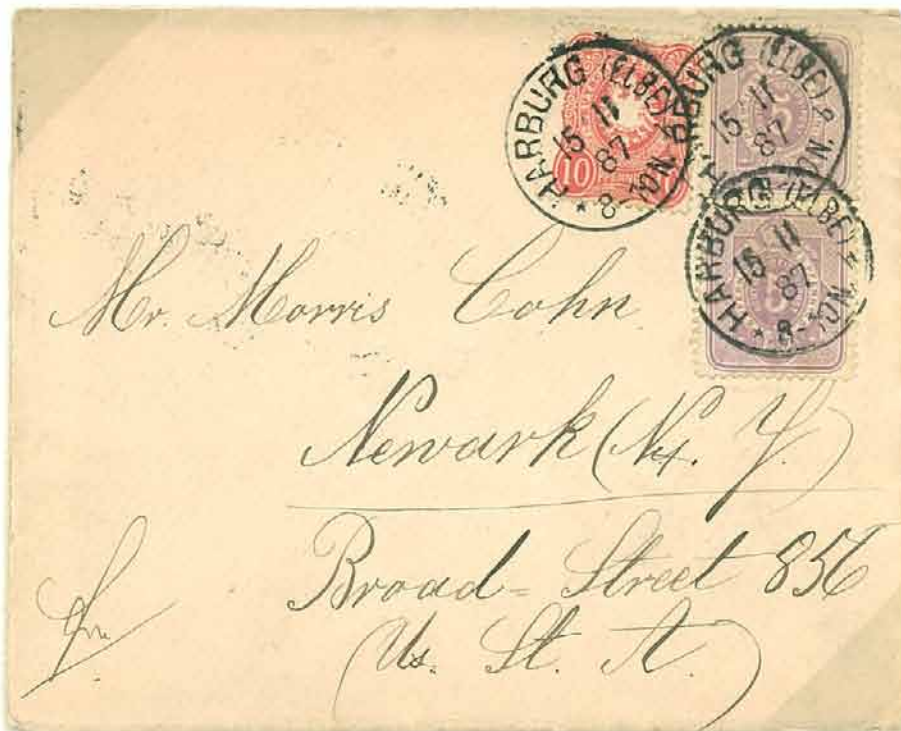 HARBURG (ELBE)
15 11
87
* 8-10N.
10
HARBURG (ELBE)
15 11
87
10N.
HARBURG (ELBE)
15 11
87
* 8-10N.
Mr. Morris Cohn
Newark (N. Y.)
Broad-Street 856
Us. St. A.